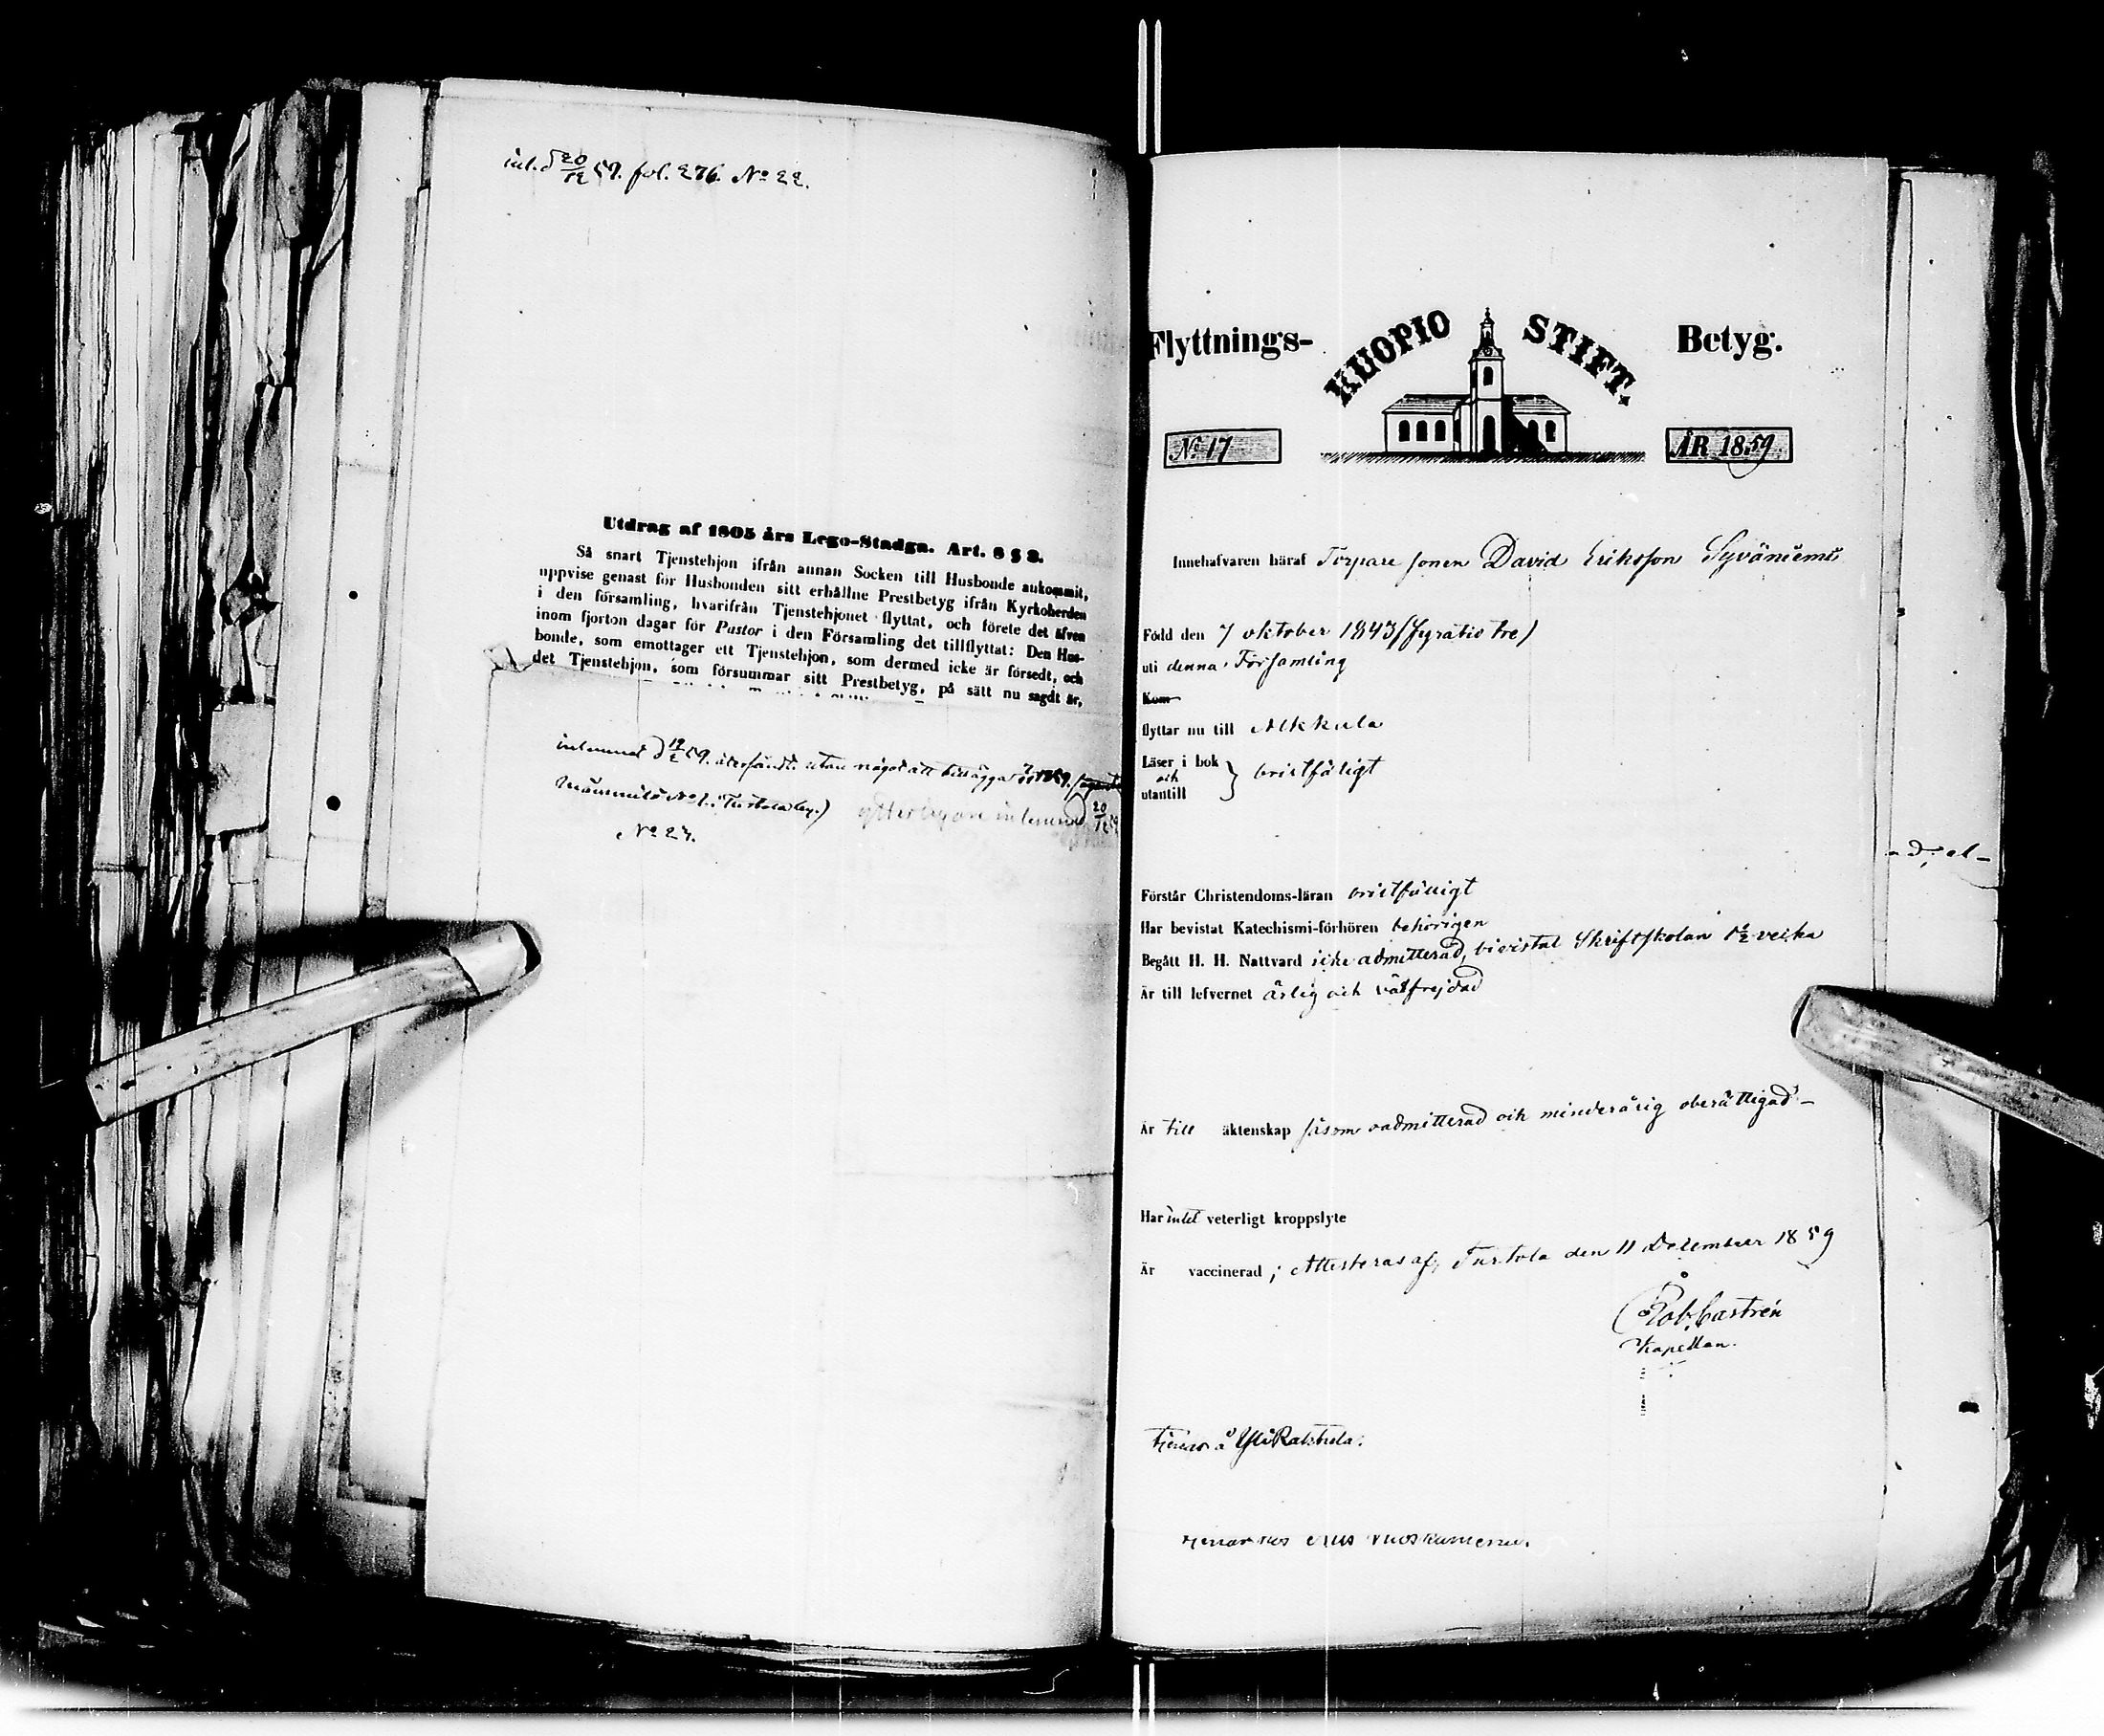 inl. d 20/12 59. fol. 276. No 22.
Utdrag af 1805 års Lego-Stadga. Art. 8 § 3.
Så snart Tjenstehjon ifrån annan Socken till Husbonde ankommit,
uppvise genast för Husbonden sitt erhållne Prestbetyg ifrån Kyrkoherden
i den församling, hvarifrån Tjenstehjonet flyttat, och förete det äfven
inom fjorton dagar för Pastor i den Församling det tillflyttat: Den Hus-
bonde, som emottager ett Tjenstehjon, som dermed icke är försedt, och
det Tjenstehjon, som försummar sitt Prestbetyg, på sätt nu sagdt är,
59. återsändt utan något att
No 1. i Turtola by.) inlemnad d 20/12 59
No 27.
Flyttnings- KUOPIO STIFT. Betyg.
No 17 ÅR 1859
Innehafvaren häraf Torpare sonen David Eriksson Syväniemi
Född den 7 oktober 1843 (fyratio tre)
uti denna Församling
Kom
flyttar nu till Alkkula
Läser i bok
och
utantill } bristfäligt
Förstår Christendoms-läran bristfälligt
Har bevistat Katechismi-förhören behörigen
Begått H. H. Nattvard icke admitterad, bivistat Skriftskolan 1 1/2 vecka
Är till lefvernet ärlig och välfrejdad
Är till äktenskap såsom oadmitterad och minderårig oberättigad
Har intet veterligt kroppslyte
Är vaccinerad; Attesteras af, Turtola den 11 December 1859
Rob. Castrén
Kapellan.
tjenar å Yli Rakkula.
tjenar hos